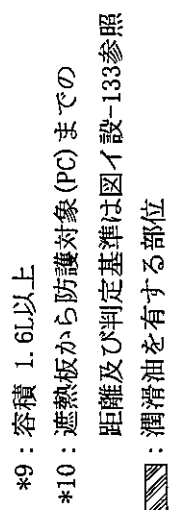 *9：容積 1.6L以上
*10：遮熱板から防護対象(PC)までの
距離及び判定基準は図イ設-133参照
：潤滑油を有する部位